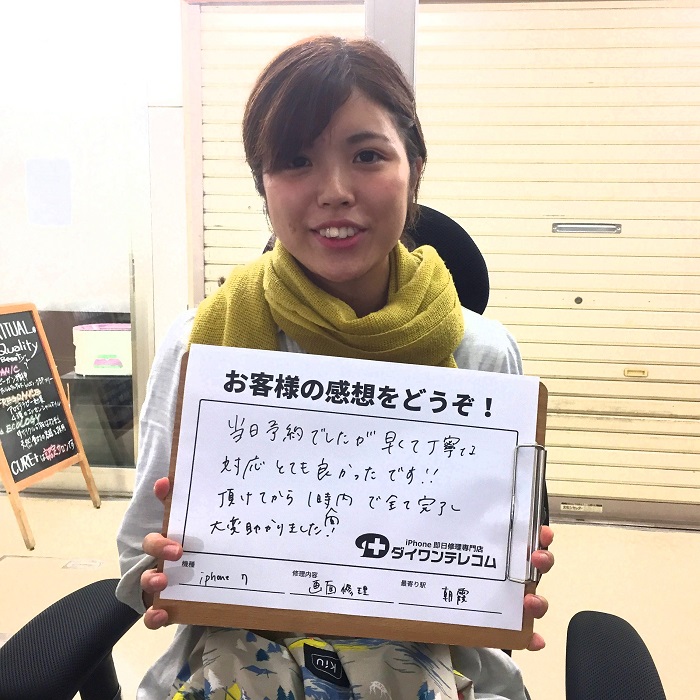 お客様の感想をどうぞ！
当日予約でしたが早くて丁寧な
対応とても良かったです!!
頂けてから1時間内で全て完了し
大変助かりました!!
iPhone 即日修理専門店
ダイワンテレコム
機種 iphone 7
修理内容 画面修理
最寄り駅 朝霞
RITUAL
Quality
Beauty
ECOLOGY
CURE
kiu